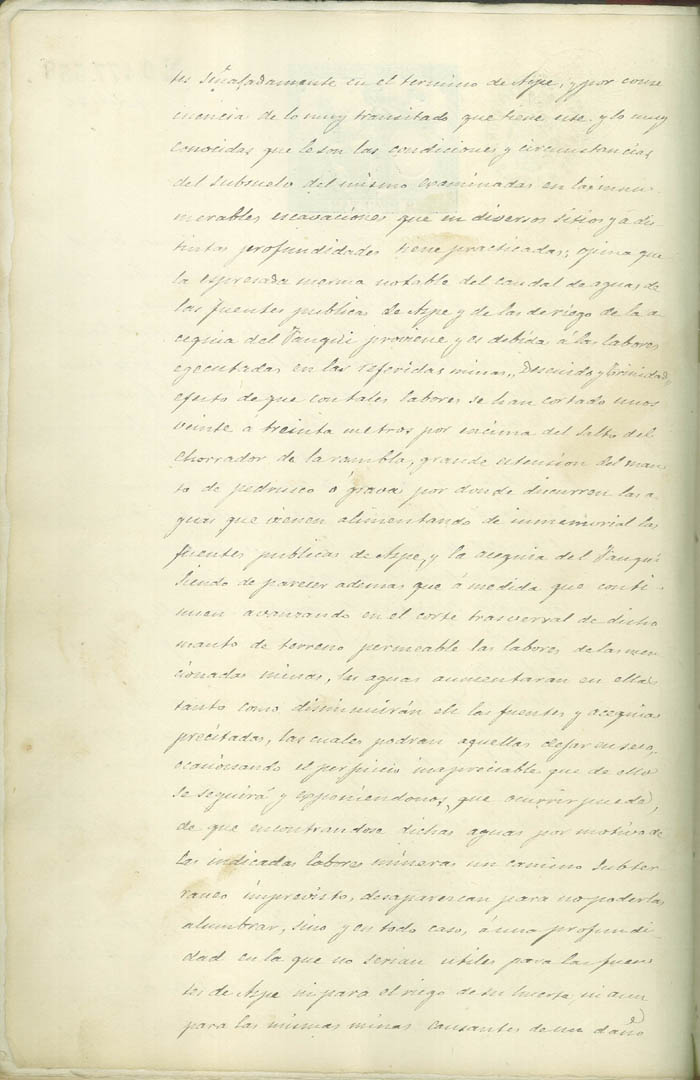 tes señaladamente en el termino de Aspe, y por conse
cuencia de lo muy transitado que tiene este y lo muy
conocidas que le son las condiciones y circunstancias
del subsuelo del mismo examinadas en las innu-
merables excavaciones que en diversos sitios y a dis-
tintas profundidades tiene practicadas; opina que
la espresada merma notable del caudal de aguas de
las fuentes publicas de Aspe y de las de riego de la a-
cequia del Fauquí proviene y es debida á las labores
egecutadas en las referidas minas, Descuido y Trinidad,
efecto de que con tales labores se han cortado unos
veinte a treinta metros por encima del salto del
chorrador de la rambla, grande estension del man-
to de pedrusco o grava por donde discurren las a-
guas que vienen alimentando de inmemorial las
fuentes publicas de Aspe, y la acequia del Fauquí
siendo de pareser ademas que á medida que conti-
nuen avanzando en el corte trasversal de dicho
manto de terreno permeable las labores de las men
cionadas minas, las aguas aumentaran en ellas
tanto como disminuirán en las fuentes y acequia
precitadas, las cuales podran aquellas dejar en seco,
ocacionando el perjuicio inapreciable que de ello
se seguirá y exponiendonos, que ocurrir puede,
de que encontrandose dichas aguas por motivo de
las indicadas labores mineras un camino subter
raneo imprevisto, desaparescan para no poderlas
alumbrar, sino y en todo caso, á una profundi-
dad en la que no serian utiles para las fuen
tes de Aspe ni para el riego de su huerta, ni aun
para las mismas minas causantes de un daño